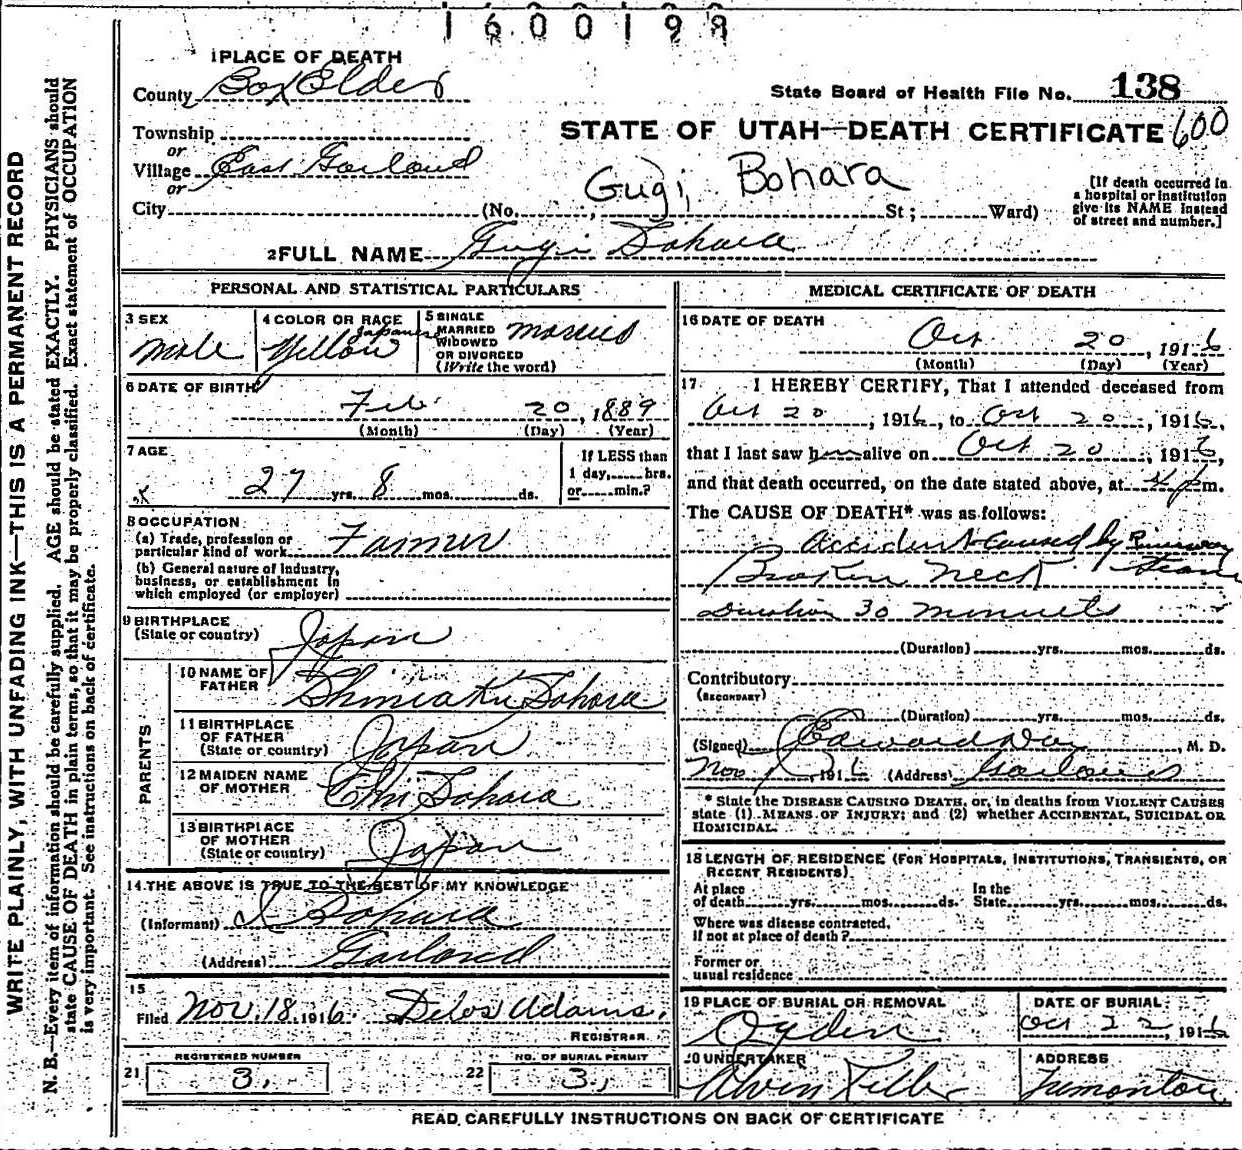 1600199
1 PLACE OF DEATH
County Box Elder
State Board of Health File No. 138
Township
or
Village East Garland
or
City
STATE OF UTAH—DEATH CERTIFICATE 600
Gugi Bohara
(No. ; St; Ward)
[If death occurred in a hospital or institution give its NAME instead of street and number.]
2 FULL NAME Gugi Bohara
WRITE PLAINLY, WITH UNFADING INK—THIS IS A PERMANENT RECORD
N. B.—Every item of information should be carefully supplied. AGE should be stated EXACTLY. PHYSICIANS should
state CAUSE OF DEATH in plain terms, so that it may be properly classified. Exact statement of OCCUPATION
is very important. See instructions on back of certificate.
PERSONAL AND STATISTICAL PARTICULARS
3 SEX
Male
4 COLOR OR RACE
Japanese
Yellow
5 SINGLE
MARRIED
WIDOWED
OR DIVORCED
(Write the word)
Married
6 DATE OF BIRTH
Feb. 20, 1889
(Month) (Day) (Year)
7 AGE
27 yrs. 8 mos. ds.
If LESS than
1 day, hrs.
or min.?
8 OCCUPATION
(a) Trade, profession or
particular kind of work Farmer
(b) General nature of industry,
business, or establishment in
which employed (or employer)
9 BIRTHPLACE
(State or country) Japan
PARENTS
10 NAME OF
FATHER
11 BIRTHPLACE
OF FATHER
(State or country) Japan
12 MAIDEN NAME
OF MOTHER
13 BIRTHPLACE
OF MOTHER
(State or country) Japan
14 THE ABOVE IS TRUE TO THE BEST OF MY KNOWLEDGE
(Informant)
(Address) Garland
15
Filed Nov. 18, 1916. Delos Adams,
REGISTRAR
REGISTERED NUMBER
21 3.
NO. OF BURIAL PERMIT
22 3.
MEDICAL CERTIFICATE OF DEATH
16 DATE OF DEATH
Oct 20, 1916
(Month) (Day) (Year)
17 I HEREBY CERTIFY, That I attended deceased from
Oct 20, 1916, to Oct 20, 1916,
that I last saw him alive on Oct 20, 1916,
and that death occurred, on the date stated above, at 4 p m.
The CAUSE OF DEATH* was as follows:
Accident caused by Runaway
Broken neck team
Duration 30 minuets
(Duration) yrs. mos. ds.
Contributory
(SECONDARY)
(Duration) yrs. mos. ds.
(Signed) Edward, M. D.
Nov 1916 (Address) Garland
* State the DISEASE CAUSING DEATH, or, in deaths from VIOLENT CAUSES
state (1) MEANS OF INJURY; and (2) whether ACCIDENTAL, SUICIDAL OR
HOMICIDAL.
18 LENGTH OF RESIDENCE (FOR HOSPITALS, INSTITUTIONS, TRANSIENTS, OR
RECENT RESIDENTS)
At place
of death yrs. mos. ds.
In the
State yrs. mos. ds.
Where was disease contracted,
if not at place of death?
Former or
usual residence
19 PLACE OF BURIAL OR REMOVAL
Ogden
DATE OF BURIAL
Oct 22, 1916
20 UNDERTAKER
Alvin
ADDRESS
Tremonton
READ CAREFULLY INSTRUCTIONS ON BACK OF CERTIFICATE